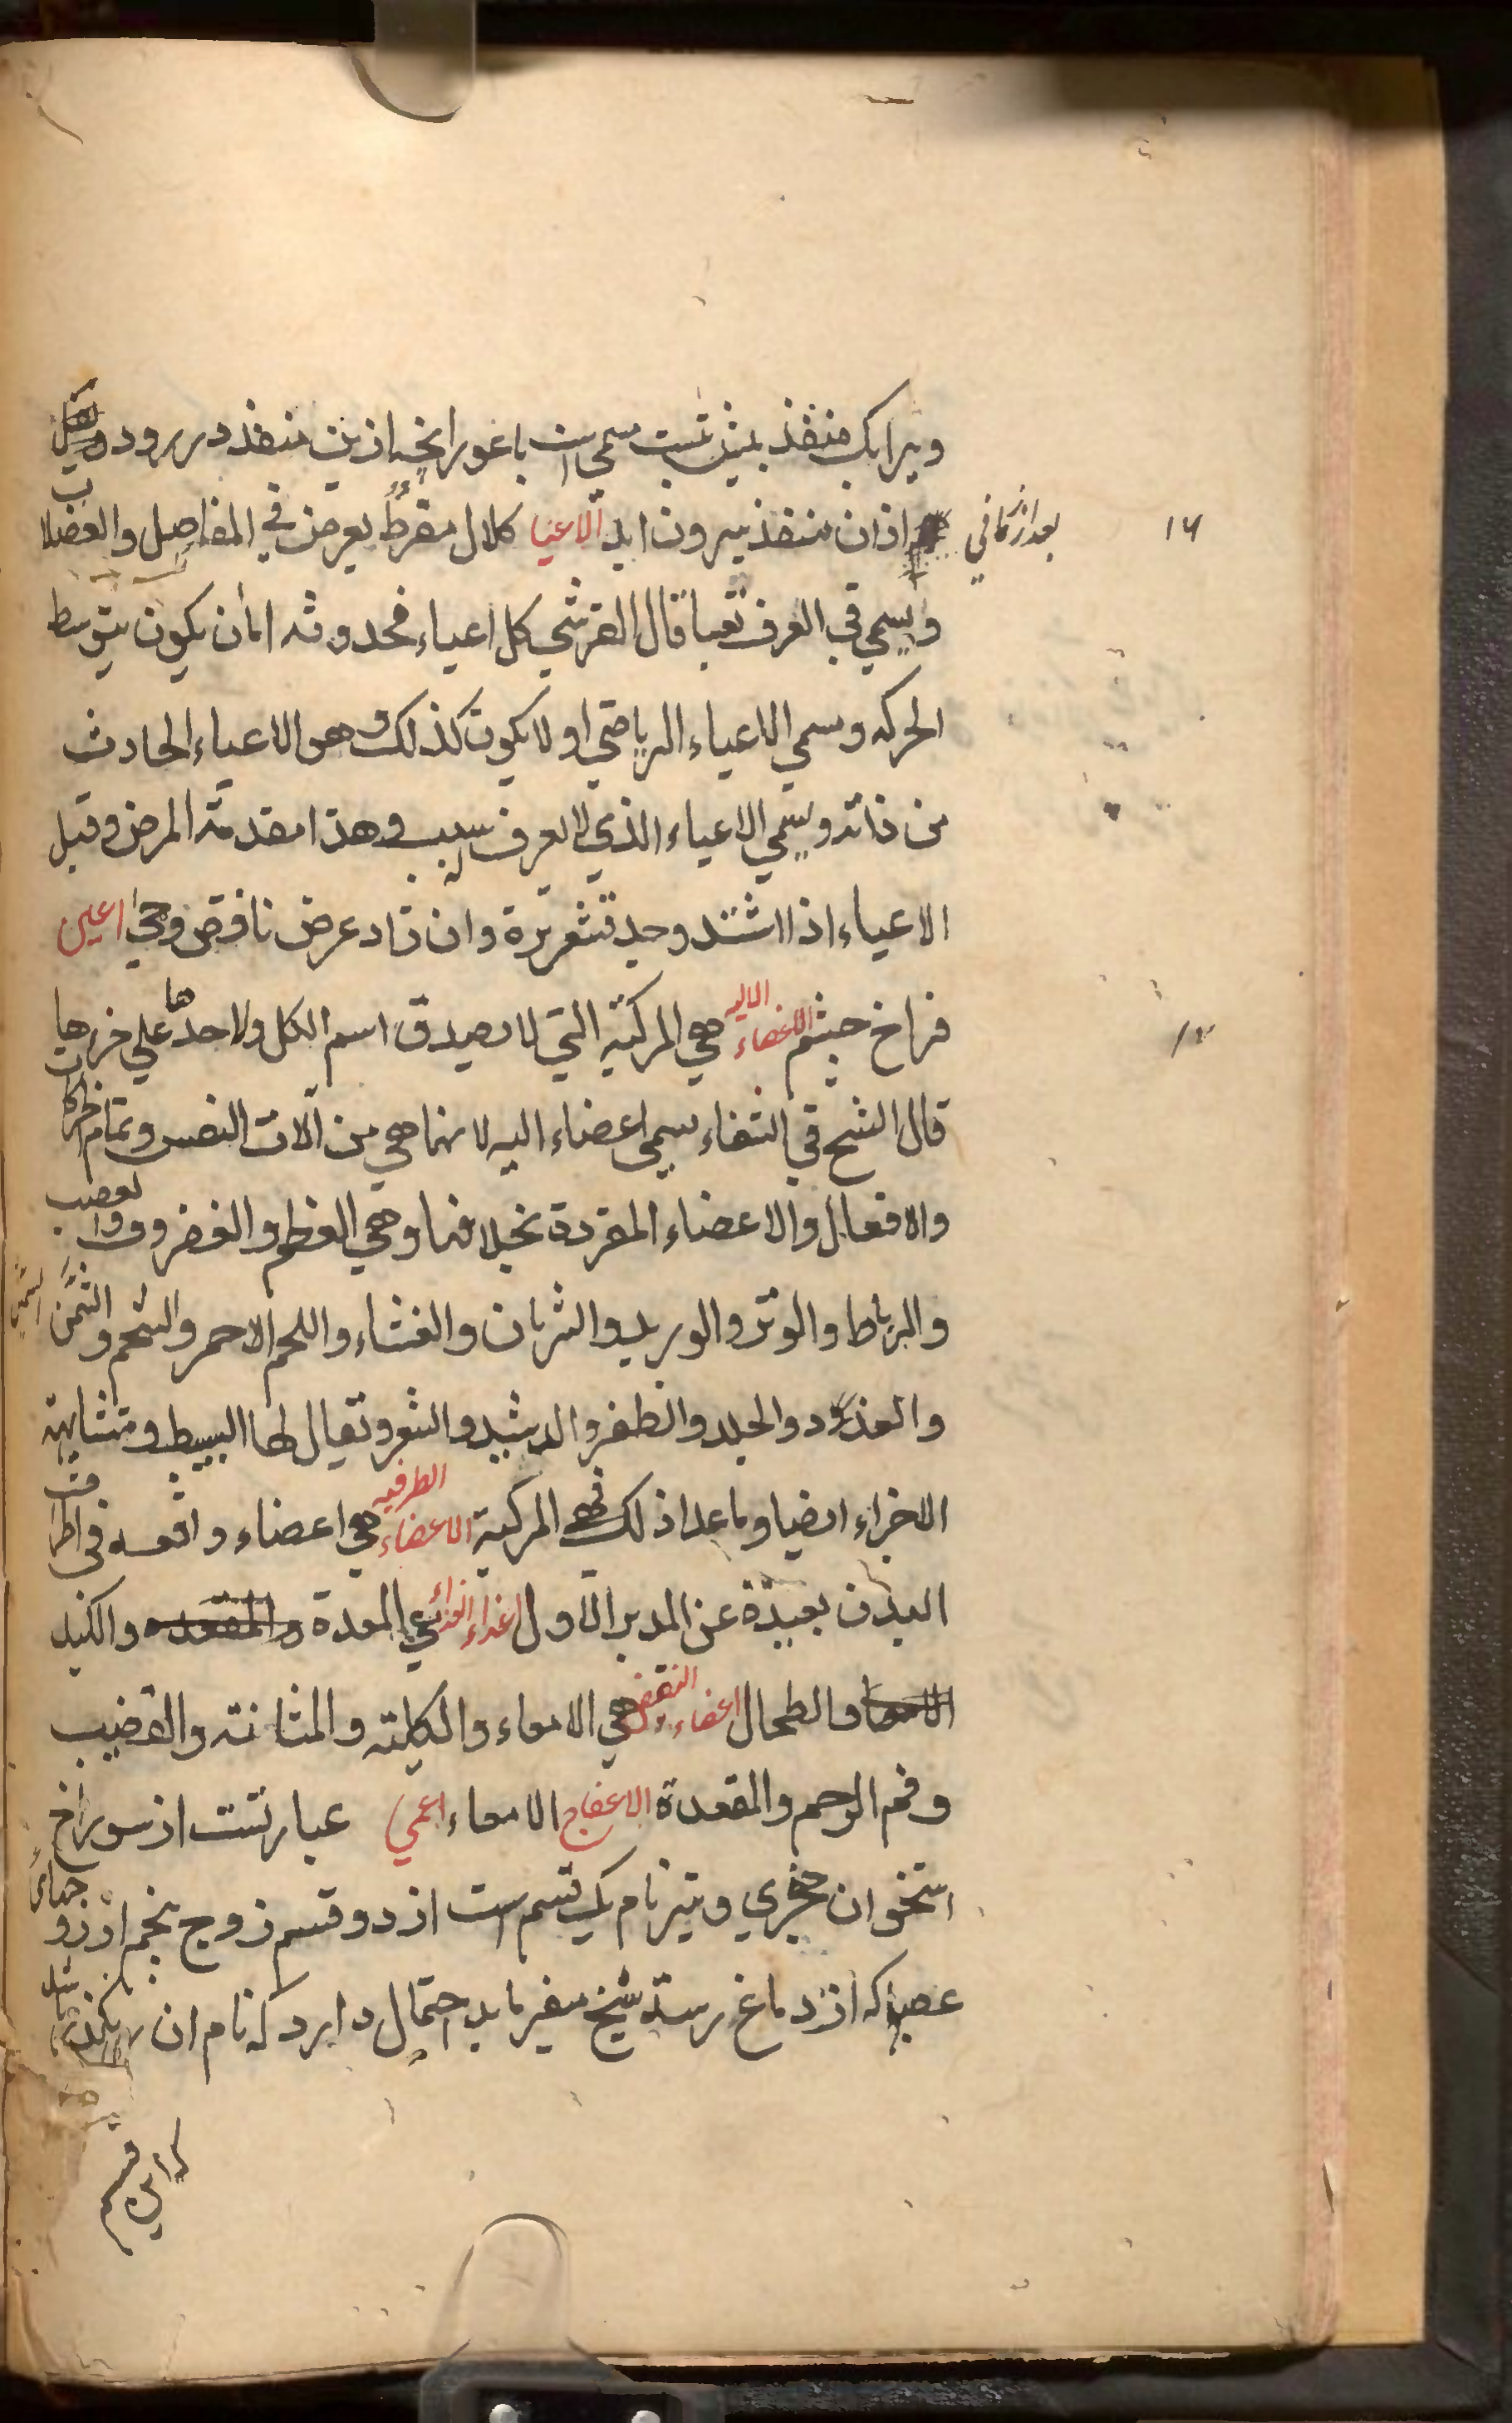 ویرا یک منفذ بمنیذ تست سمی است باعور انجه ازین منفذ در رود
بعد از زمانی از ان منفذ بیرون اید الاعیا کلال مفرط یعرض فی المفاصل والعضلات
ویسمی فی العرف تعبا قال القرشی کل اعیاء فحدوثه اما ان یکون بتوسط
الحرکه ویسمی الاعیاء الریاضی او لا یکون کذلک وهو الاعیاء الحادث
من ذاته ویسمی الاعیاء الذی لا یعرف له سبب وهذا مقدمة المرض وقیل
الاعیاء اذا اشتد وجد قشعریرة وان زاد عرض نافض وحمی اعین
فراخ چشم الاعضاء الالیه هی المرکبة التی لا یصدق اسم الکل ولا حدها علی جزءها
قال الشیخ فی الشفاء یسمی اعضاء الیه لانها هی من آلات النفس وتمام الحرکات
والافعال والاعضاء المفردة بخلافها وهی العظم والغضروف والعصب
والرباط والوتر والورید والشریان والغشاء واللحم الاحمر والشحم والسمن
والغدود والجلد والظفر والدشید والشعر وتقال لها البسیط ومتشابهة
الاجزاء ایضا وما عدا ذلک فهی المرکبة الاعضاء الطرفیه هی اعضاء واقعه فی اطراف
البدن بعیدة عن المدبر الاول اعضاء الغذاء هی المعدة والمقعده والکبد
الامعا والطحال اعضاء النفض هی الامعاء والکلیته والمثانته والقضیب
وفم الرحم والمقعدة الاعفاج الامعاء اعمی عبارتست از سوراخ
استخوان حجری ونیز نام یک قسم است از دو قسم زوج پنجم از ازواج
عصب که از دماغ رسته شیخ میفرماید احتمال دارد که نام ان
که این قسم
۱۶
۱۷